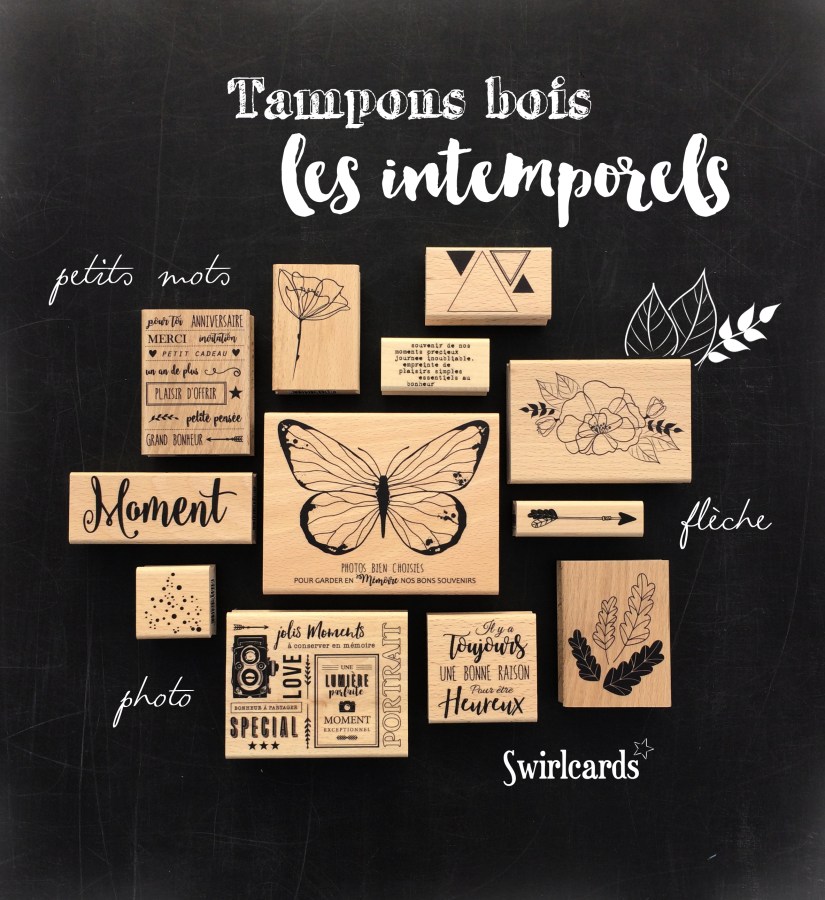 Tampons bois
les intemporels
petits mots
pour toi ANNIVERSAIRE
MERCI invitation
PETIT CADEAU
un an de plus
PLAISIR D'OFFRIR
petite pensée
GRAND BONHEUR
souvenir de nos
moments precieux
journee inoubliable,
empreinte de
plaisirs simples
essentiels au
bonheur
Moment
PHOTOS BIEN CHOISIES
POUR GARDER EN Mémoire NOS BONS SOUVENIRS
flèche
photo
jolis Moments
à conserver en mémoire
LOVE
BONHEUR À PARTAGER
SPECIAL
UNE
LUMIÈRE
parfaite
MOMENT
EXCEPTIONNEL
PORTRAIT
Il y a
Toujours
UNE BONNE RAISON
Pour être
Heureux
Swirlcards